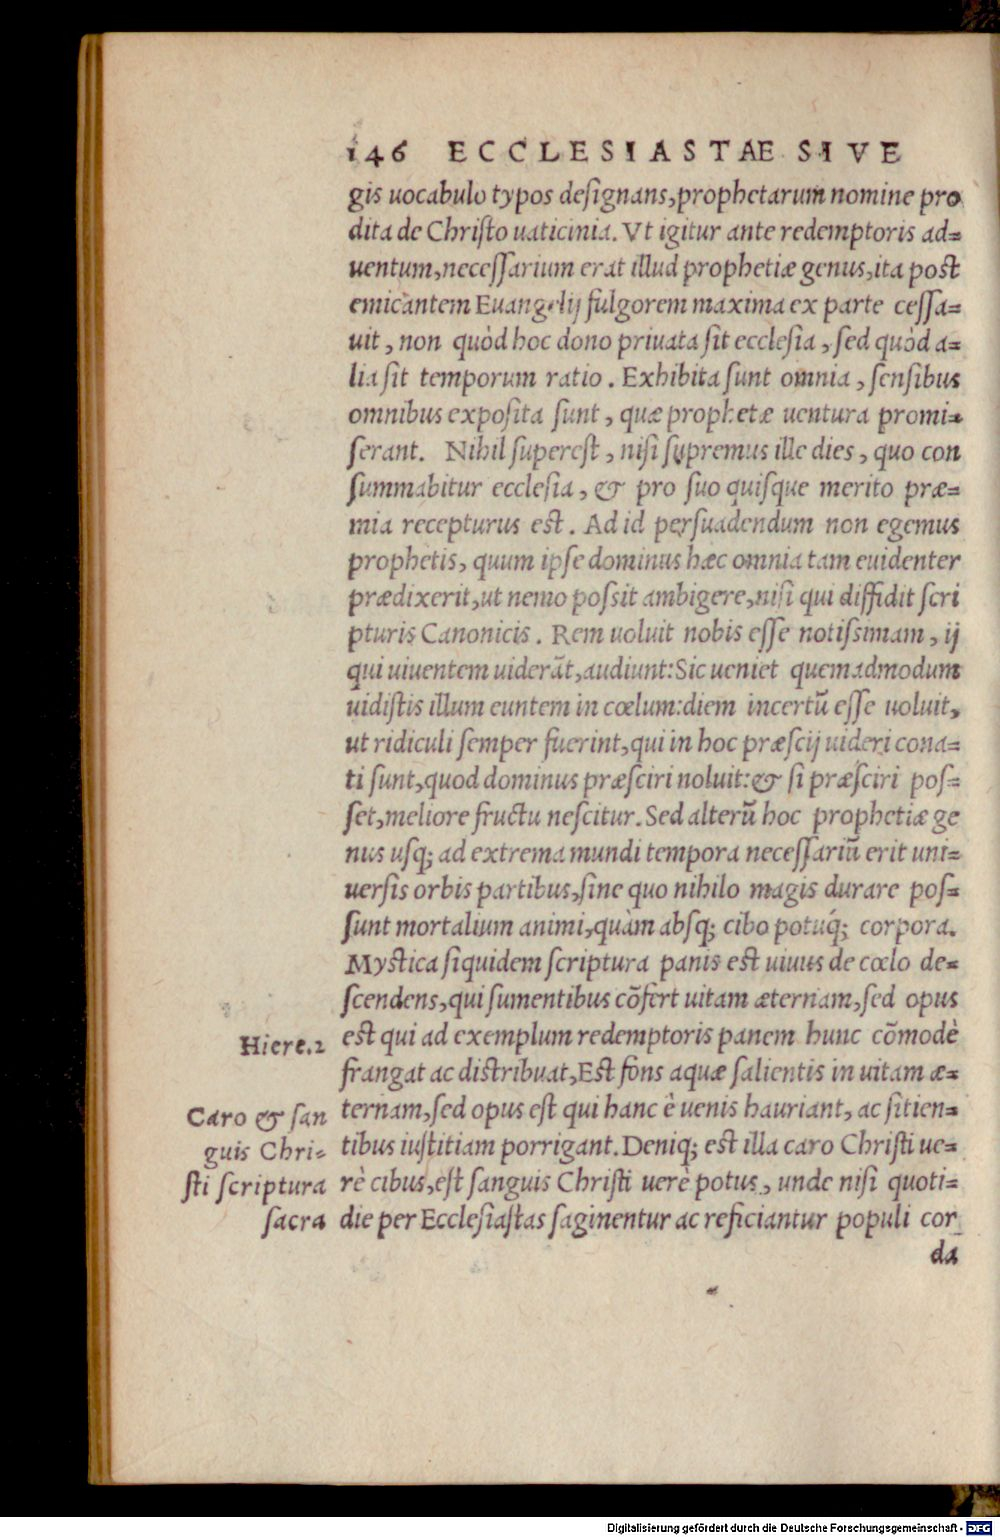 146 ECCLESIASTAE SIVE
gis uocabulo typos deſignans, prophetarum nomine pro
dita de Chriſto uaticinia. Vt igitur ante redemptoris ad=
uentum, neceſſarium erat illud prophetiæ genus, ita poſt
emicantem Euangelij fulgorem maxima ex parte ceſſa=
uit, non quòd hoc dono priuata ſit eccleſia, ſed quòd a=
lia ſit temporum ratio. Exhibita ſunt omnia, ſenſibus
omnibus expoſita ſunt, quæ prophetæ uentura promi=
ſerant. Nihil ſupereſt, niſi ſupremus ille dies, quo con
ſummabitur eccleſia, & pro ſuo quiſque merito præ=
mia recepturus eſt. Ad id perſuadendum non egemus
prophetis, quum ipſe dominus hæc omnia tam euidenter
prædixerit, ut nemo poſsit ambigere, niſi qui diffidit ſcri
pturis Canonicis. Rem uoluit nobis eſſe notiſsimam, ij
qui uiuentem uiderāt, audiunt: Sic ueniet quemadmodum
uidiſtis illum euntem in cœlum: diem incertū eſſe uoluit,
ut ridiculi ſemper fuerint, qui in hoc præſcij uideri cona=
ti ſunt, quod dominus præſciri noluit: & ſi præſciri poſ=
ſet, meliore fructu neſcitur. Sed alterū hoc prophetiæ ge
nus uſq; ad extrema mundi tempora neceſſariū erit uni=
uerſis orbis partibus, ſine quo nihilo magis durare poſ=
ſunt mortalium animi, quàm abſq; cibo potuq́; corpora.
Myſtica ſiquidem ſcriptura panis eſt uiuus de cœlo de=
ſcendens, qui ſumentibus cōfert uitam æternam, ſed opus
eſt qui ad exemplum redemptoris panem hunc cōmodè
frangat ac diſtribuat, Eſt fons aquæ ſalientis in uitam æ=
ternam, ſed opus eſt qui hanc è uenis hauriant, ac ſitien=
tibus iuſtitiam porrigant. Deniq; eſt illa caro Chriſti ue=
rè cibus, eſt ſanguis Chriſti uerè potus, unde niſi quoti=
die per Eccleſiaſtas ſaginentur ac reficiantur populi cor
da
Hiere.2
Caro & ſan
guis Chri=
ſti ſcriptura
ſacra
Digitalisierung gefördert durch die Deutsche Forschungsgemeinschaft - DFG